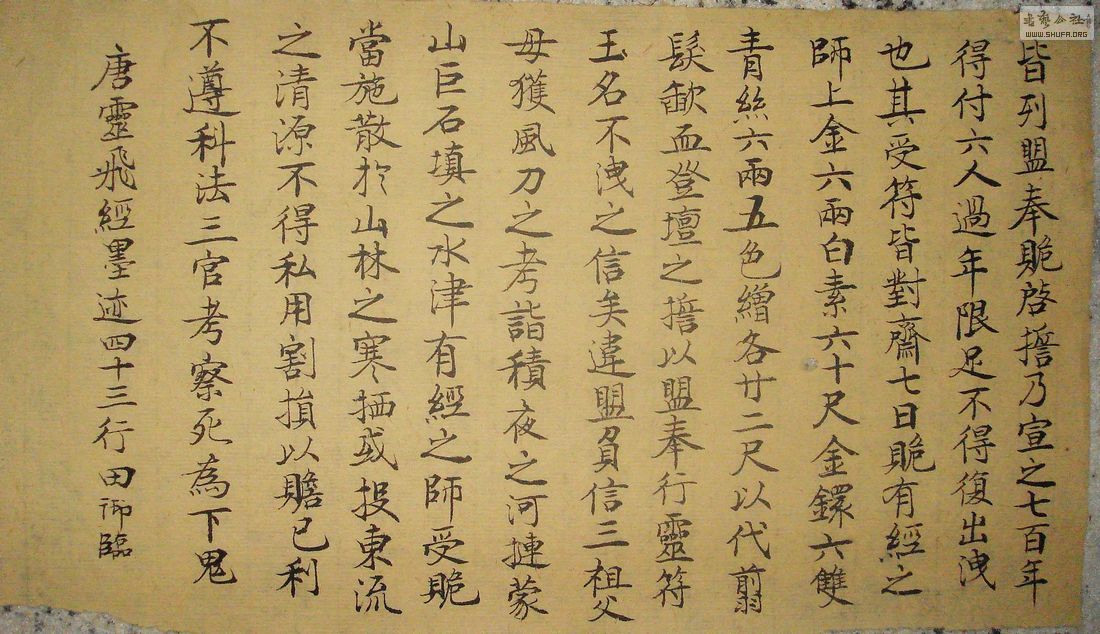 皆列盟奉賝啓擔乃宣之七百年
得付六人過年限足不得復出洩
也其受符皆對齋七日賝有經之
師上金六兩白素六十尺金鐶六雙
青絲六兩五色繒各廿二尺以代翦
髮歃血登壇之擔以盟奉行靈符
玉名不洩之信矣違盟負信三祖父
母獲風刀之考詣積夜之河摙蒙
山巨石填之水津有經之師受賝
當施散於山林之寒栖或投東流
之清源不得私用割損以贍己利
不遵科法三官考察死為下鬼
唐靈飛經墨迹四十三行田御臨
書藝公社
WWW.SHUFA.ORG